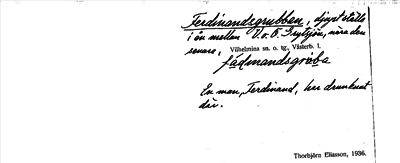 Ferdinandsgrubban, djupt ställe
i ån mellan V. o. Ö. Grytsjön, nära den
senare, Vilhelmina sn. o. tg., Västerb. l.
fädinandsgróba
En man, Ferdinand, har drunknat
där.
Thorbjörn Eliasson, 1936.